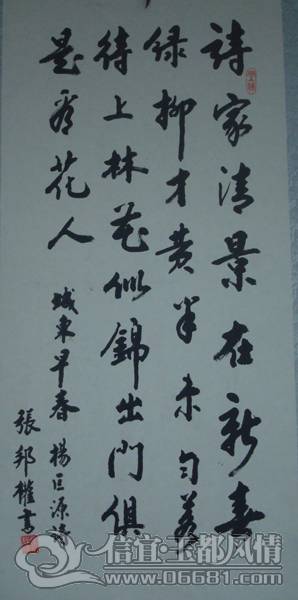 詩家清景在新春
绿柳才黄半未匀若
待上林花似錦出門俱
是看花人
城東早春 楊巨源詩
張邦權書
信宜·玉都风情
www.06681.com